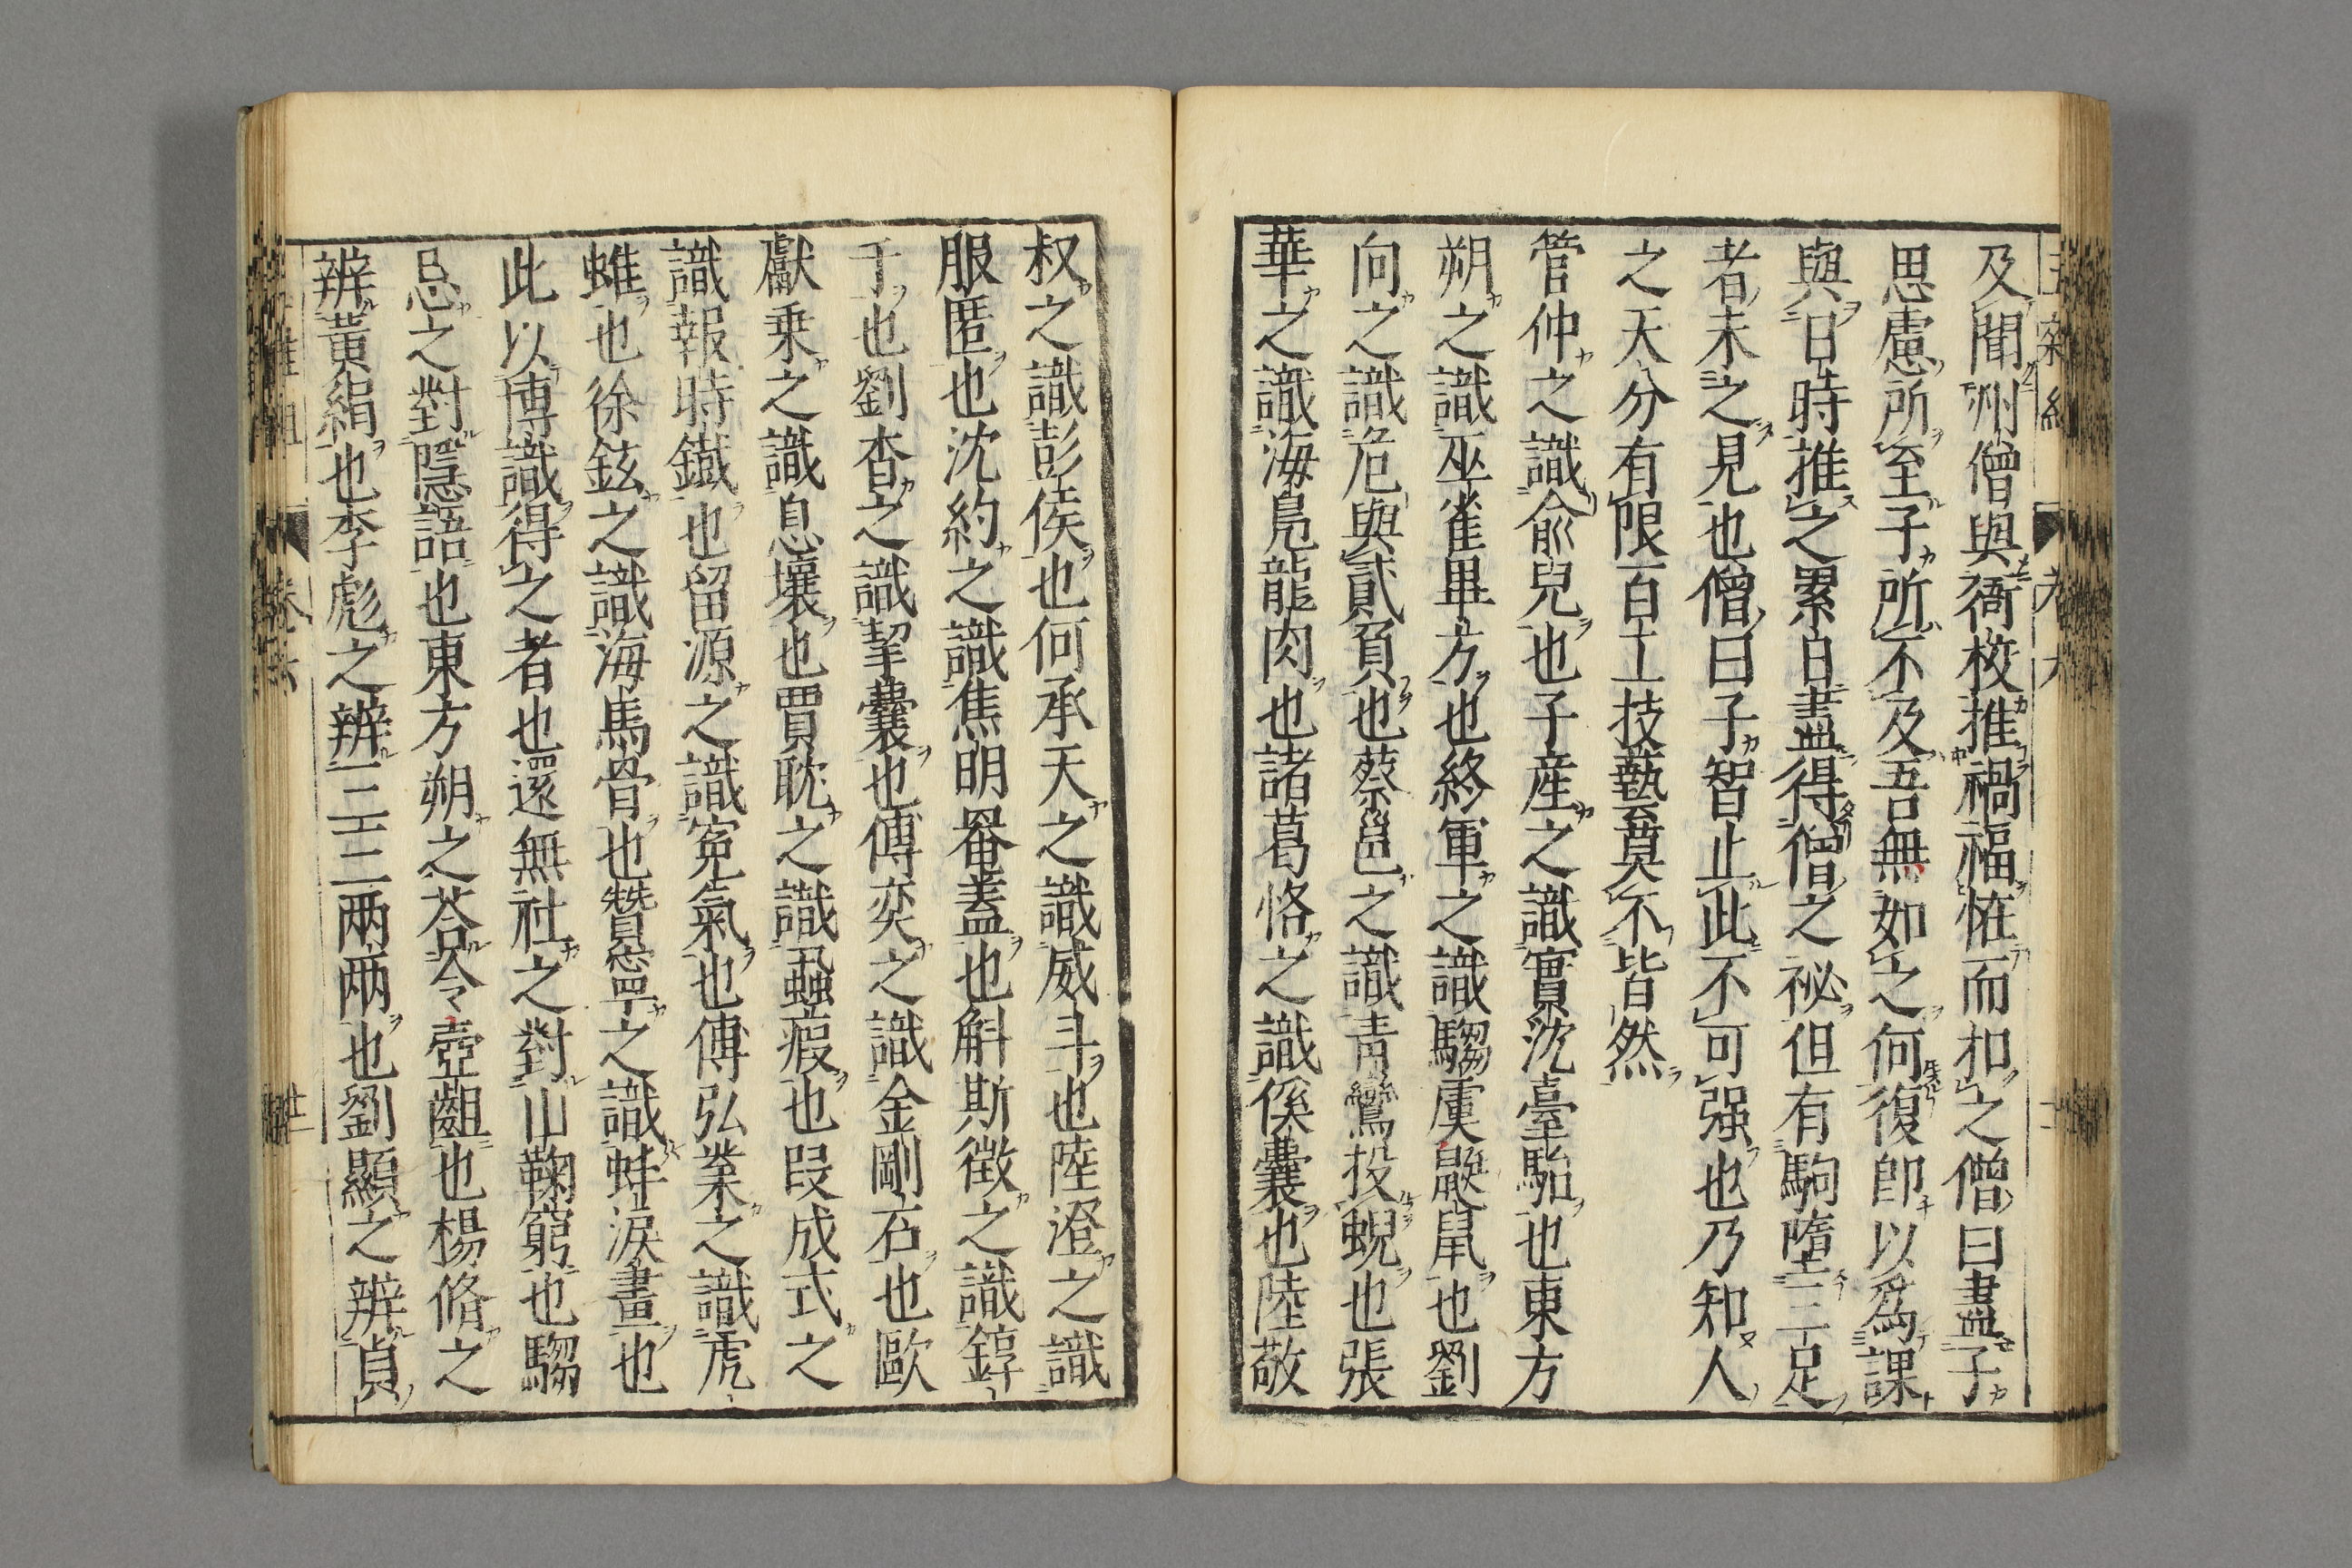 及聞州僧與衙校推禍福恠而扣之僧曰盡子
思慮所至子所不及吾無如之何復卽以爲課
與日時推之累日盡得僧之祕但有駒墮三足
者未之見也僧曰子智止此不可强也乃知人
之天分有限百工技藝莫不皆然
管仲之識俞兒也子產之識實沈臺駘也東方
朔之識巫雀畢方也終軍之識騶虞鼮鼠也劉
向之識危與貳負也蔡邕之識靑鸞投蜺也張
華之識海鳧龍肉也諸葛恪之識傒囊也陸敬
叔之識彭侯也何承天之識威斗也陸澄之識
服匿也沈約之識焦明罨蓋也斛斯徵之識錞
于也劉杳之識挈囊也傅奕之識金剛石也歐
獻乗之識息壤也賈耽之識蝨瘕也段成式之
識報時鐵也留源之識寃氣也傅弘業之識虎
蜼也徐鉉之識海馬骨也贊寧之識蚌淚畫也
此以博識得之者也還無社之對山鞠窮也騶
忌之對隱語也東方朔之荅令壺齟也楊脩之
辨黃絹也李彪之辨三三兩兩也劉顯之辨貞